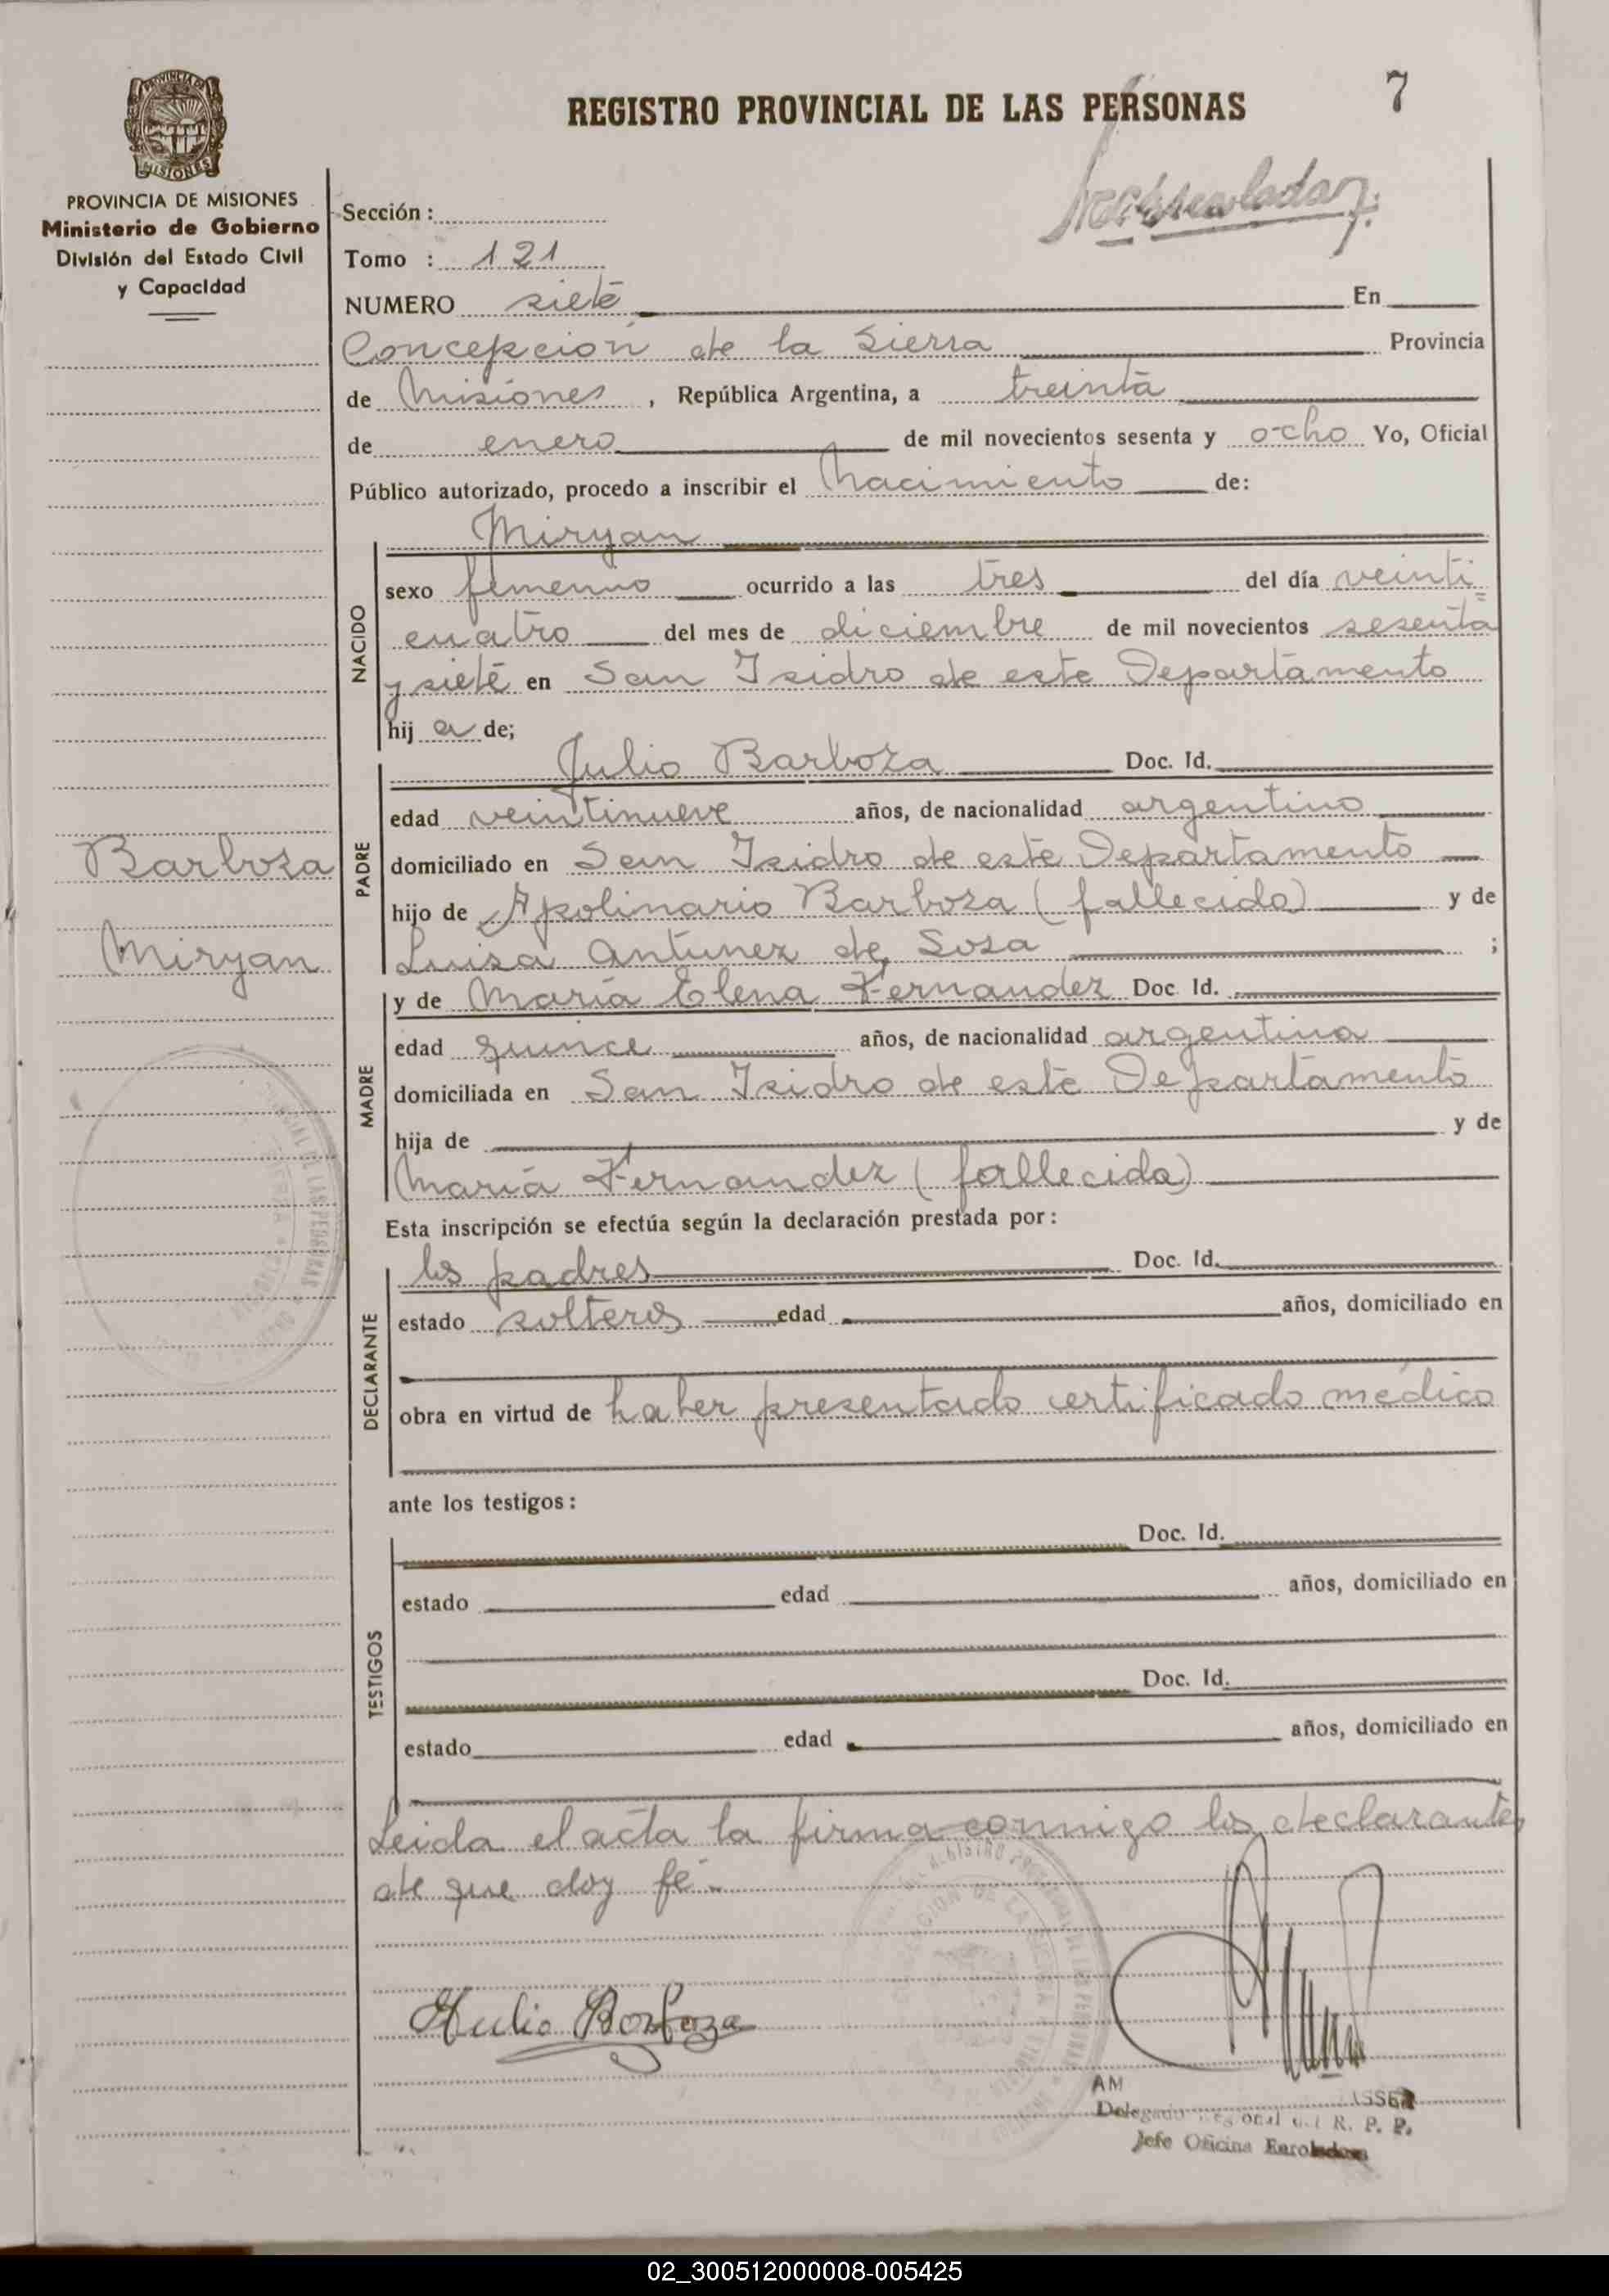 REGISTRO PROVINCIAL DE LAS PERSONAS
7
PROVINCIA DE MISIONES
Ministerio de Gobierno
División del Estado Civil
y Capacidad
Sección :
Tomo : 121
NUMERO siete En
Concepción de la Sierra Provincia
de Misiones , República Argentina, a treinta
de enero de mil novecientos sesenta y ocho Yo, Oficial
Público autorizado, procedo a inscribir el Nacimiento de:
NACIDO
Miryan
sexo femenino ocurrido a las tres del día veinti
cuatro del mes de diciembre de mil novecientos sesenta
y siete en San Isidro de este Departamento
hij a de;
PADRE
Julio Barboza Doc. Id.
edad veintinueve años, de nacionalidad argentino
domiciliado en San Isidro de este Departamento
hijo de Apolinario Barboza (fallecido) y de
Luisa Antunez de Sosa ;
Barboza
Miryan
MADRE
y de María Elena Fernandez Doc Id.
edad quince años, de nacionalidad argentina
domiciliada en San Isidro de este Departamento
hija de y de
María Fernandez (fallecida)
Esta inscripción se efectúa según la declaración prestada por:
DECLARANTE
los padres Doc. Id.
estado solteros edad años, domiciliado en
obra en virtud de haber presentado certificado médico
ante los testigos:
TESTIGOS
Doc. Id.
estado edad años, domiciliado en
Doc. Id.
estado edad años, domiciliado en
Leida el acta la firma conmigo los declarantes
de que doy fé.-
Julio Barboza
AM
Delegado R. P. P.
Jefe Oficina
02_300512000008-005425